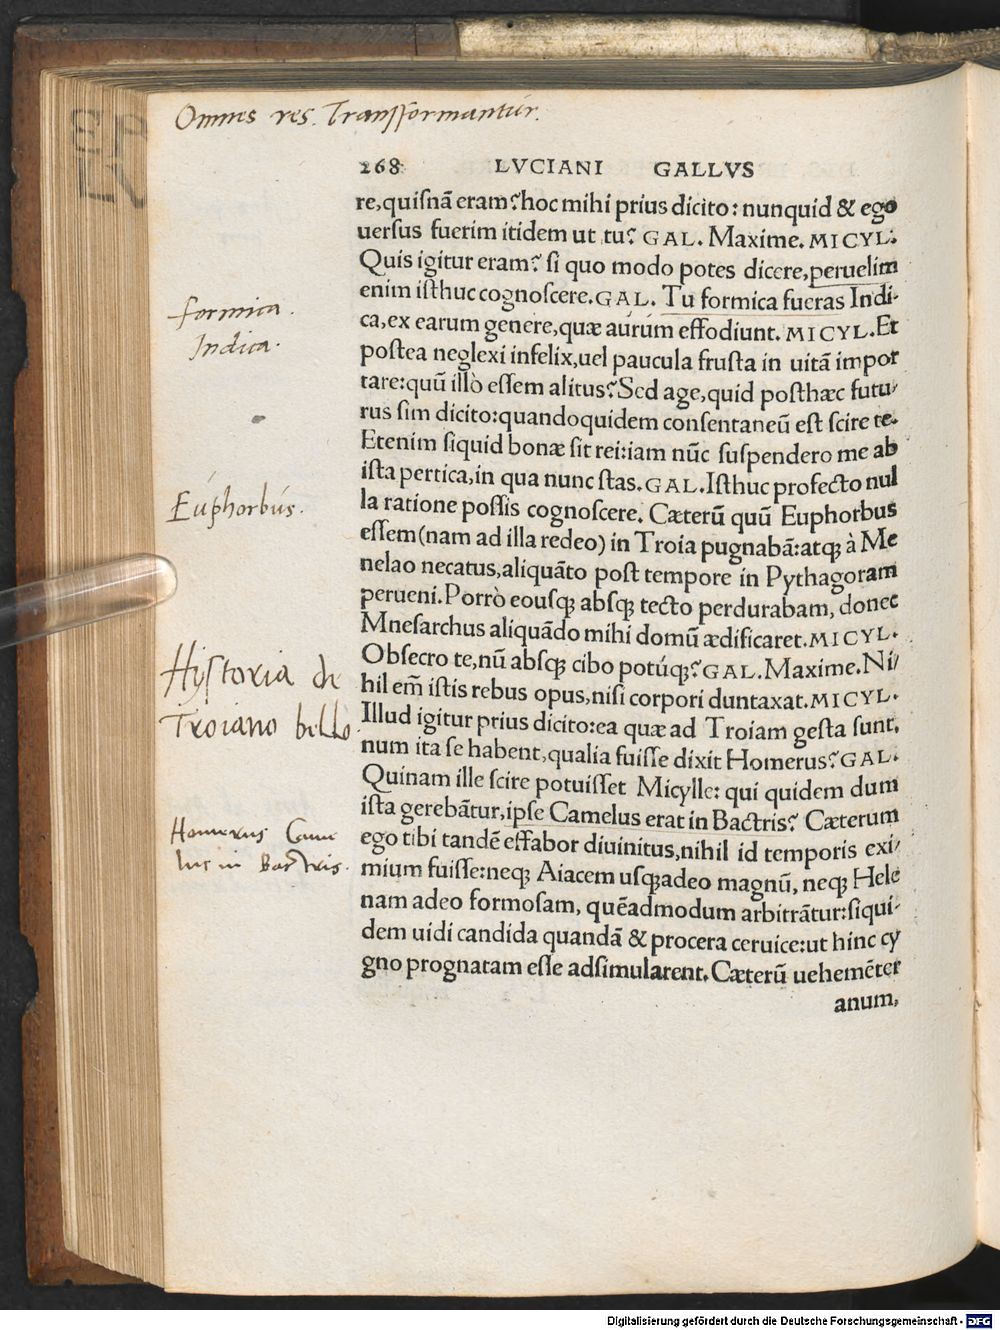 Omnes res Transformantur.
268 LVCIANI GALLVS
re,quiſnã eram?hoc mihi prius dicito: nunquid & ego
uerſus fuerim itidem ut tu? GAL. Maxime. MICYL.
Quis igitur eram? ſi quo modo potes dicere,peruelim
enim iſthuc cognoſcere.GAL. Tu formica fueras Indi-
ca,ex earum genere,quæ aurum effodiunt. MICYL.Et
poſtea neglexi infelix,uel paucula fruſta in uitã impor
tare:quũ illò eſſem alitus?Sed age,quid poſthæc futu-
rus ſim dicito:quandoquidem conſentaneũ eſt ſcire te.
Etenim ſiquid bonæ ſit rei:iam nũc ſuſpendero me ab
iſta pertica,in qua nunc ſtas.GAL.Iſthuc profecto nul
la ratione poſſis cognoſcere. Cæterũ quũ Euphorbus
eſſem(nam ad illa redeo) in Troia pugnabã:atq; à Me
nelao necatus,aliquãto poſt tempore in Pythagoram
perueni.Porrò eouſq; abſq; tecto perdurabam, donec
Mneſarchus aliquãdo mihi domũ ædificaret.MICYL.
Obſecro te,nũ abſq; cibo potúq;?GAL.Maxime.Ni-
hil em̃ iſtis rebus opus,niſi corpori duntaxat.MICYL.
Illud igitur prius dicito:ea quæ ad Troiam geſta ſunt,
num ita ſe habent,qualia fuiſſe dixit Homerus?GAL.
Quinam ille ſcire potuiſſet Micylle: qui quidem dum
iſta gerebãtur,ipſe Camelus erat in Bactris? Cæterum
ego tibi tandẽ effabor diuinitus,nihil id temporis exi-
mium fuiſſe:neq; Aiacem uſq;adeo magnũ, neq; Hele
nam adeo formoſam, quẽadmodum arbitrãtur:ſiqui-
dem uidi candida quandã & procera ceruice:ut hinc cy
gno prognatam eſſe adſimularent.Cæterũ uehemẽter
anum,
formica.
Indica.
Euphorbus.
Hyſtoria de
Troiano bello.
Homerus Came
lus in Bactris.
Digitalisierung gefördert durch die Deutsche Forschungsgemeinschaft - DFG